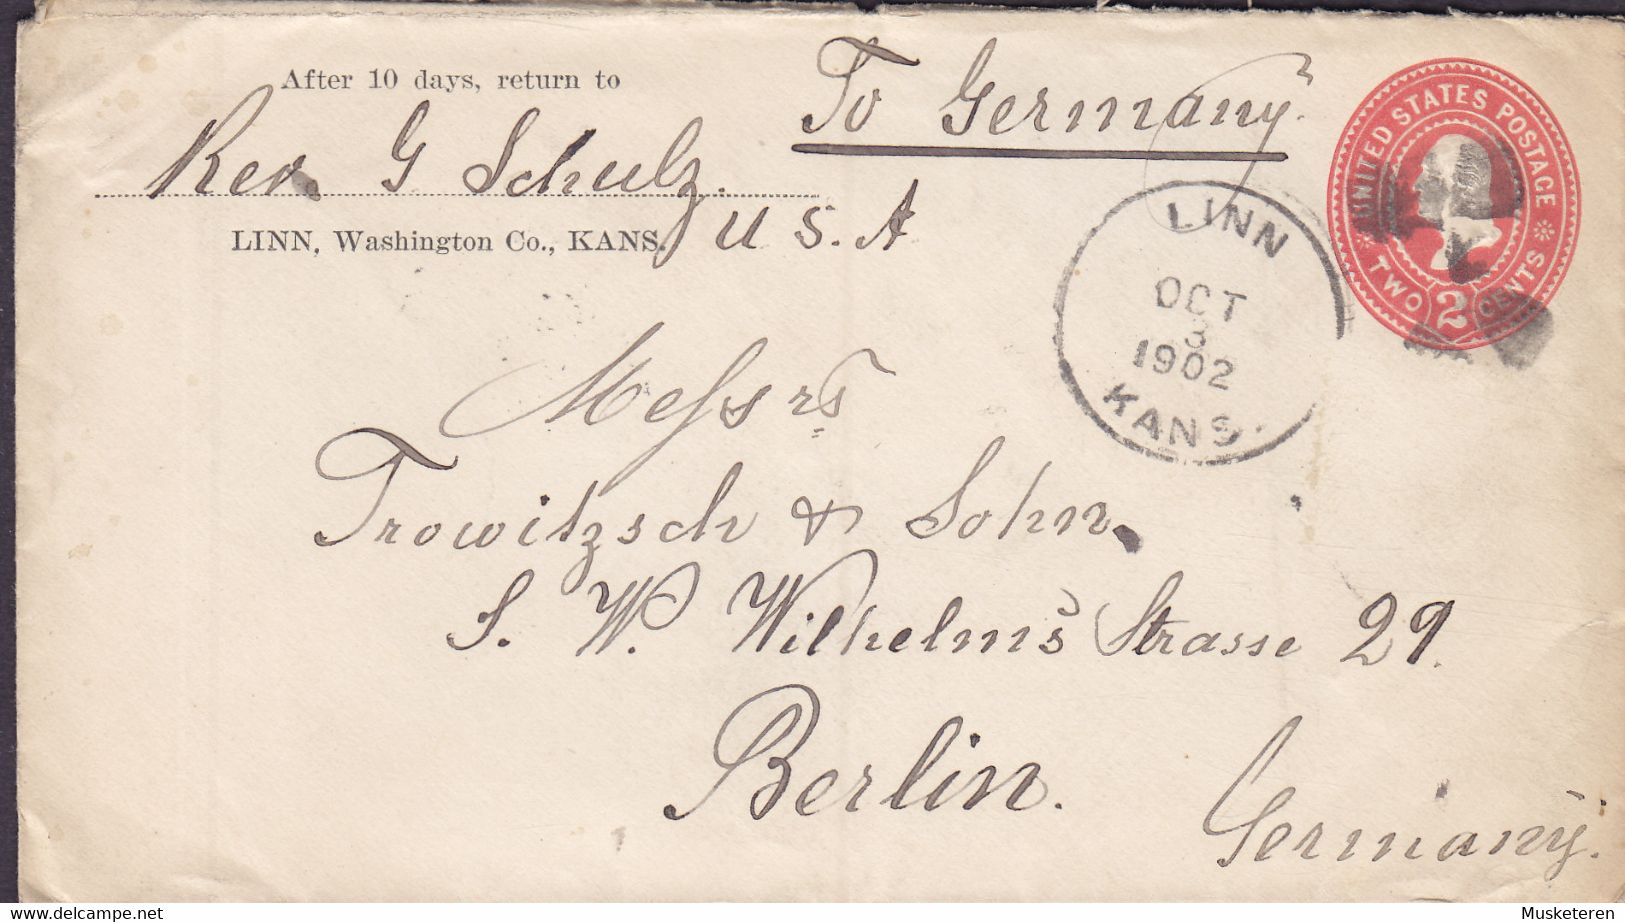 After 10 days, return to
Rev. G Schulz.
LINN, Washington Co., KANS.
U S. A
To Germany.
UNITED STATES POSTAGE
TWO 2 CENTS
LINN
OCT
3
1902
KANS.
Messrs
Trowitzsch & Sohn.
S. W. Wilhelms Strasse 29.
Berlin.
Germany.
www.delcampe.net
Musketeren